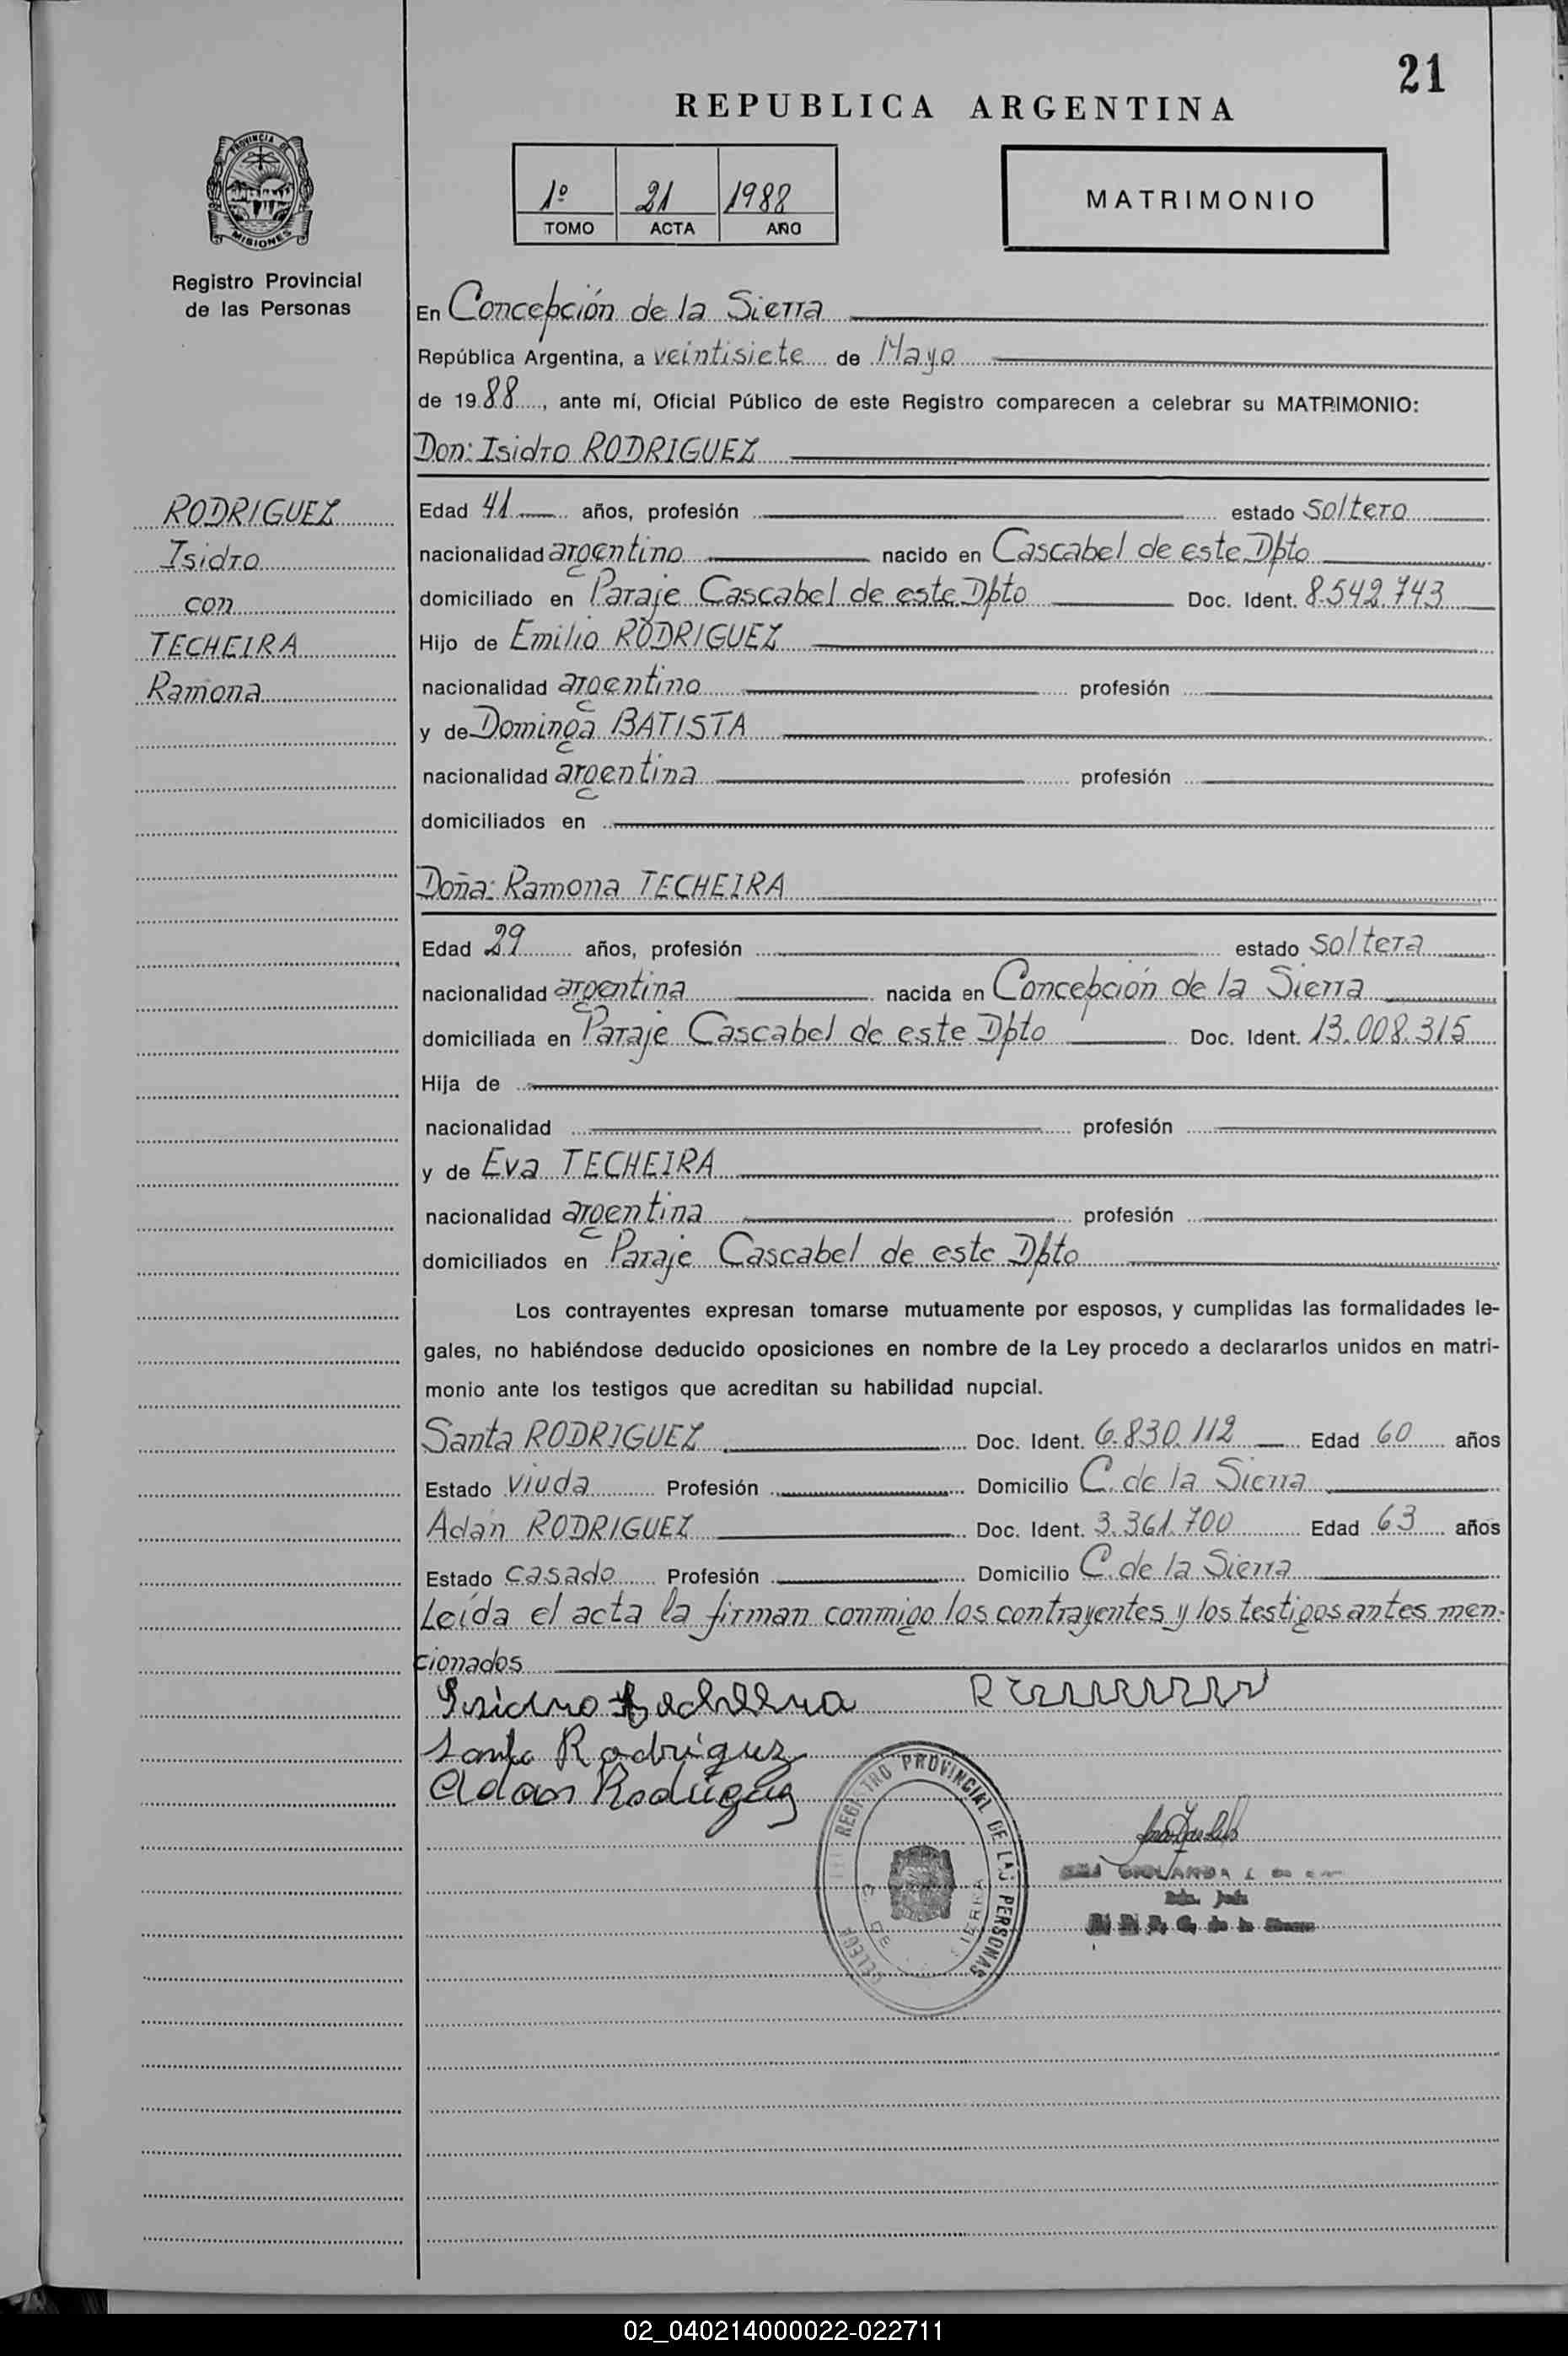 21
REPUBLICA ARGENTINA
PROVINCIA DE
MISIONES
Registro Provincial
de las Personas
1º 21 1988
TOMO ACTA AÑO
MATRIMONIO
En Concepción de la Sierra
República Argentina, a veintisiete de Mayo
de 1988, ante mí, Oficial Público de este Registro comparecen a celebrar su MATRIMONIO:
Don: Isidro RODRIGUEZ
RODRIGUEZ
Isidro
con
TECHEIRA
Ramona
Edad 41 años, profesión estado soltero
nacionalidad argentino nacido en Cascabel de este Dpto
domiciliado en Paraje Cascabel de este Dpto Doc. Ident. 8.542.743
Hijo de Emilio RODRIGUEZ
nacionalidad argentino profesión
y de Dominga BATISTA
nacionalidad argentina profesión
domiciliados en
Doña: Ramona TECHEIRA
Edad 29 años, profesión estado soltera
nacionalidad argentina nacida en Concepción de la Sierra
domiciliada en Paraje Cascabel de este Dpto Doc. Ident. 13.008.315
Hija de
nacionalidad profesión
y de Eva TECHEIRA
nacionalidad argentina profesión
domiciliados en Paraje Cascabel de este Dpto
Los contrayentes expresan tomarse mutuamente por esposos, y cumplidas las formalidades le-
gales, no habiéndose deducido oposiciones en nombre de la Ley procedo a declararlos unidos en matri-
monio ante los testigos que acreditan su habilidad nupcial.
Santa RODRIGUEZ Doc. Ident. 6.830.112 Edad 60 años
Estado viuda Profesión Domicilio C. de la Sierra
Adán RODRIGUEZ Doc. Ident. 3.361.700 Edad 63 años
Estado casado Profesión Domicilio C. de la Sierra
Leída el acta la firman conmigo los contrayentes y los testigos antes men-
cionados
Isidro
Santa Rodriguez
Adan Rodriguez
REGISTRO PROVINCIAL DE LAS PERSONAS
C. DE SIERRA
de la Sierra
02_040214000022-022711